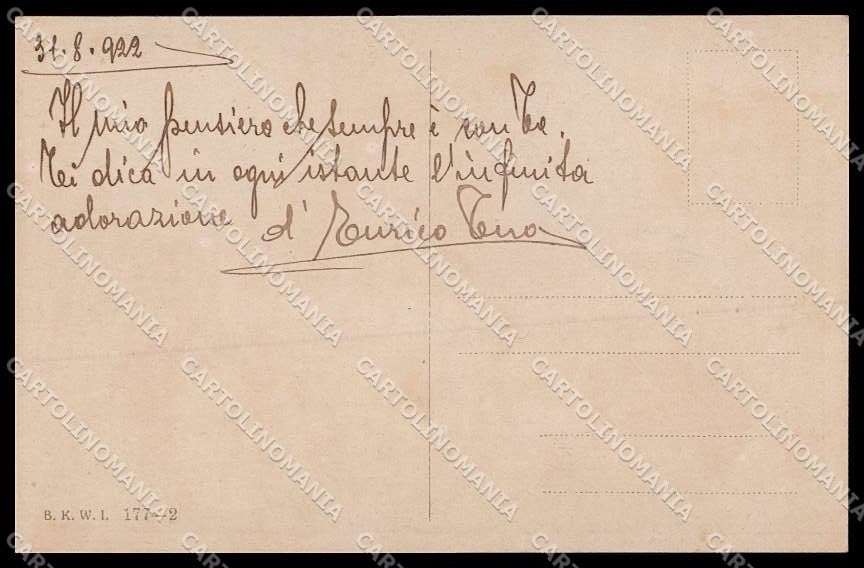 31.8.922
Il mio pensiero che sempre è con Te,
Ti dica in ogni istante l'infinita
adorazione d' Enrico Tuo
B. K. W. I. 177-2
CARTOLINOMANIA